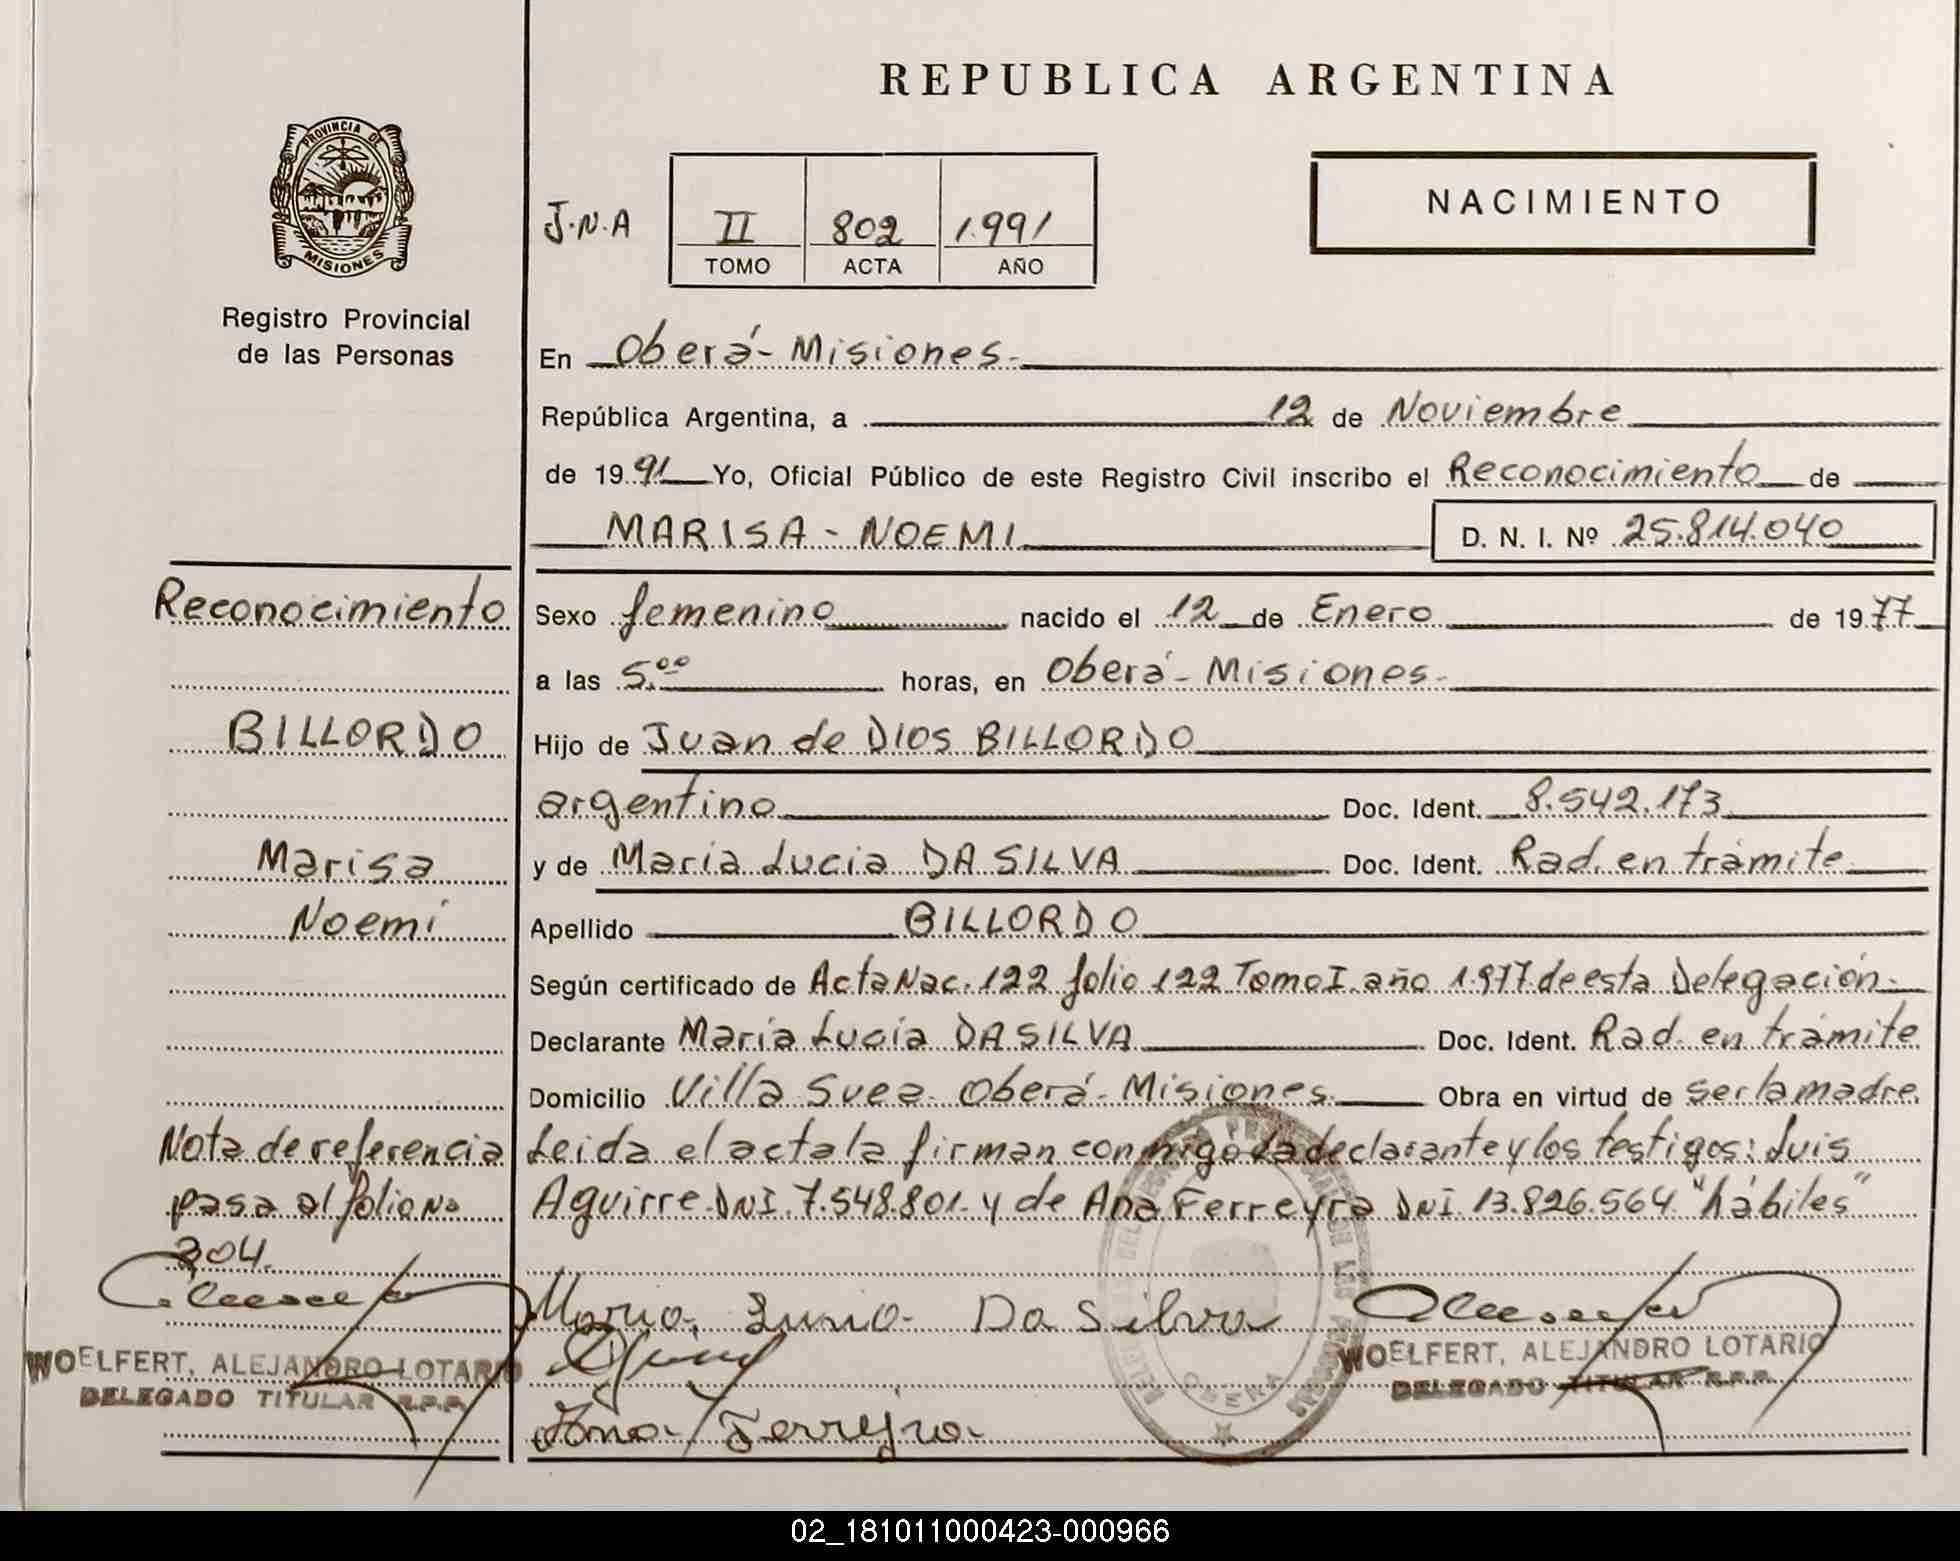 REPUBLICA ARGENTINA
PROVINCIA DE
MISIONES
Registro Provincial
de las Personas
NACIMIENTO
J.N.A
II 802 1.991
TOMO ACTA AÑO
En Oberá - Misiones.
República Argentina, a 12 de Noviembre
de 1991 Yo, Oficial Público de este Registro Civil inscribo el Reconocimiento de
MARISA - NOEMI
D. N. I. Nº 25.814.040
Reconocimiento
BILLORDO
Marisa
Noemí
Nota de referencia
pasa al folio No
204.
WOELFERT, ALEJANDRO LOTARIO
DELEGADO TITULAR R.P.P.
Sexo femenino nacido el 12 de Enero de 1977
a las 5.00 horas, en Oberá - Misiones.
Hijo de Juan de DIOS BILLORDO
argentino Doc. Ident. 8.542.173
y de María Lucia DA SILVA Doc. Ident. Rad. en trámite
Apellido BILLORDO
Según certificado de Acta Nac. 122 folio 122 Tomo I año 1.977 de esta Delegación.
Declarante María Lucía DA SILVA Doc. Ident. Rad. en trámite
Domicilio Villa Svea Oberá - Misiones. Obra en virtud de ser la madre.
Leida el acta la firman conmigo la declarante y los testigos: Luis
Aguirre DNI. 7.548.801. y de Ana Ferreyra DNI. 13.826.564 "hábiles"
Da Silva
WOELFERT, ALEJANDRO LOTARIO
DELEGADO TITULAR R.P.P.
OBERA
Ana Ferreyra
02_181011000423-000966